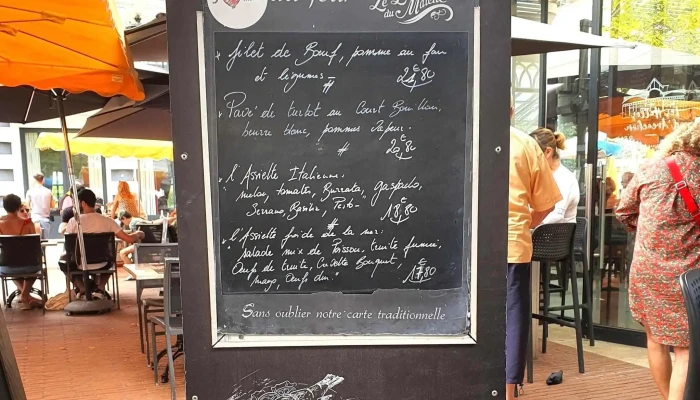 Le
du Marché
* filet de Bœuf, pomme au four
et légumes #
24€80
* Pavé de turbot au Court Bouillon,
beurre blanc, pommes vapeur.
#
20€80
* l'Assiette Italienne
melon, tomates, Burrata, gaspacho,
Serrano, Basilic, Pesto
#
18€80
* l'Assiette froide de la mer:
salade mix de Poisson, truite fumée,
Oeufs de truite, Crevette Bouquet,
mayo, Oeufs dur.
17€80
Sans oublier notre carte traditionnelle